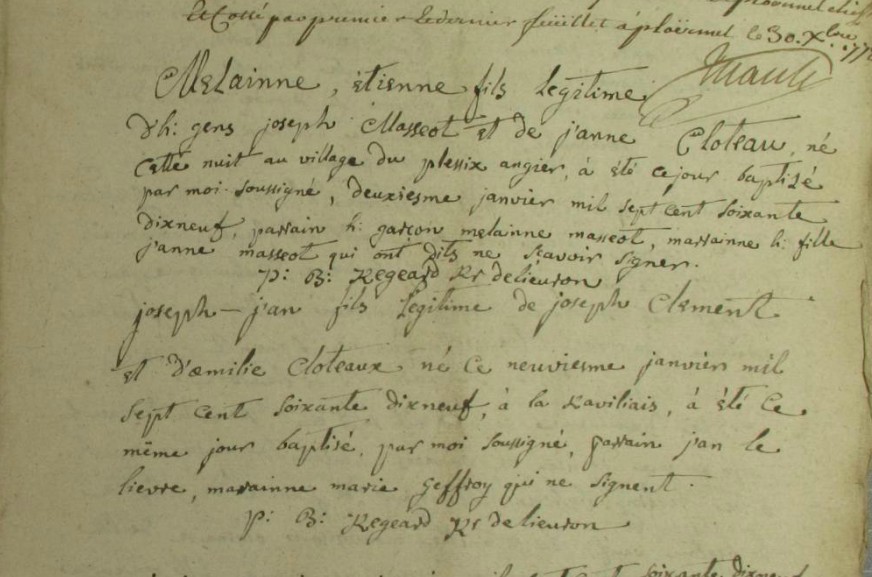 Et Cotté par premier et dernier feüillet à ploërmel le 30. Xbre 177
Melainne, étienne fils legitime
d'h: gens joseph Masseot et de janne Cloteau, né
cette nuit au village du plessix angier, à été ce jour baptizé
par moi soussigné, deuxiesme janvier mil sept cent soixante
dixneuf, parrain h: garçon melainne masseot, marrainne h: fille
janne masseot qui ont dits ne sçavoir signer.
p: B: Regeard Rr de lieuron
joseph - jan fils legitime de joseph Clement
et d'æmilie Cloteaux né ce neuviesme janvier mil
sept cent soixante dixneuf, à la Raviliais, à été ce
même jour baptisé, par moi soussigné, parrain jan le
lievre, marrainne marie geffroy qui ne signent.
p: B: Regeard Rr de lieuron
soixante dixneuf